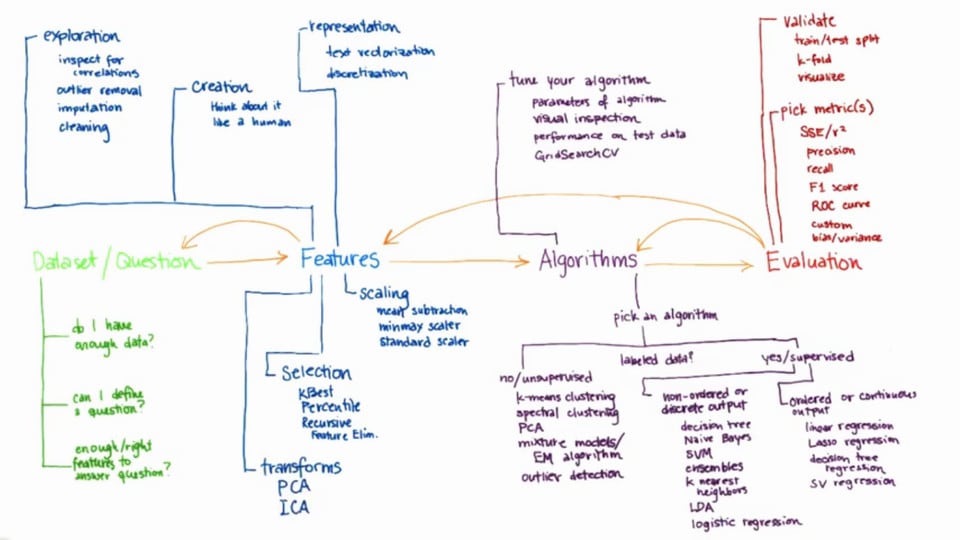 exploration
inspect for
correlations
outlier removal
imputation
cleaning
creation
think about it
like a human
representation
text vectorization
discretization
tune your algorithm
parameters of algorithm
visual inspection
performance on test data
GridSearchCV
validate
train/test split
k-fold
visualize
pick metric(s)
SSE/r²
precision
recall
F1 score
ROC curve
custom
bias/variance
Dataset/Question
Features
Algorithms
Evaluation
do I have
enough data?
can I define
a question?
enough/right
features to
answer question?
scaling
mean subtraction
minmax scaler
standard scaler
Selection
KBest
Percentile
Recursive
Feature Elim.
transforms
PCA
ICA
pick an algorithm
labeled data?
no/unsupervised
k-means clustering
spectral clustering
PCA
mixture models/
EM algorithm
outlier detection
yes/supervised
non-ordered or
discrete output
decision tree
Naive Bayes
SVM
ensembles
k nearest
neighbors
LDA
logistic regression
ordered or continuous
output
linear regression
Lasso regression
decision tree
regression
SV regression